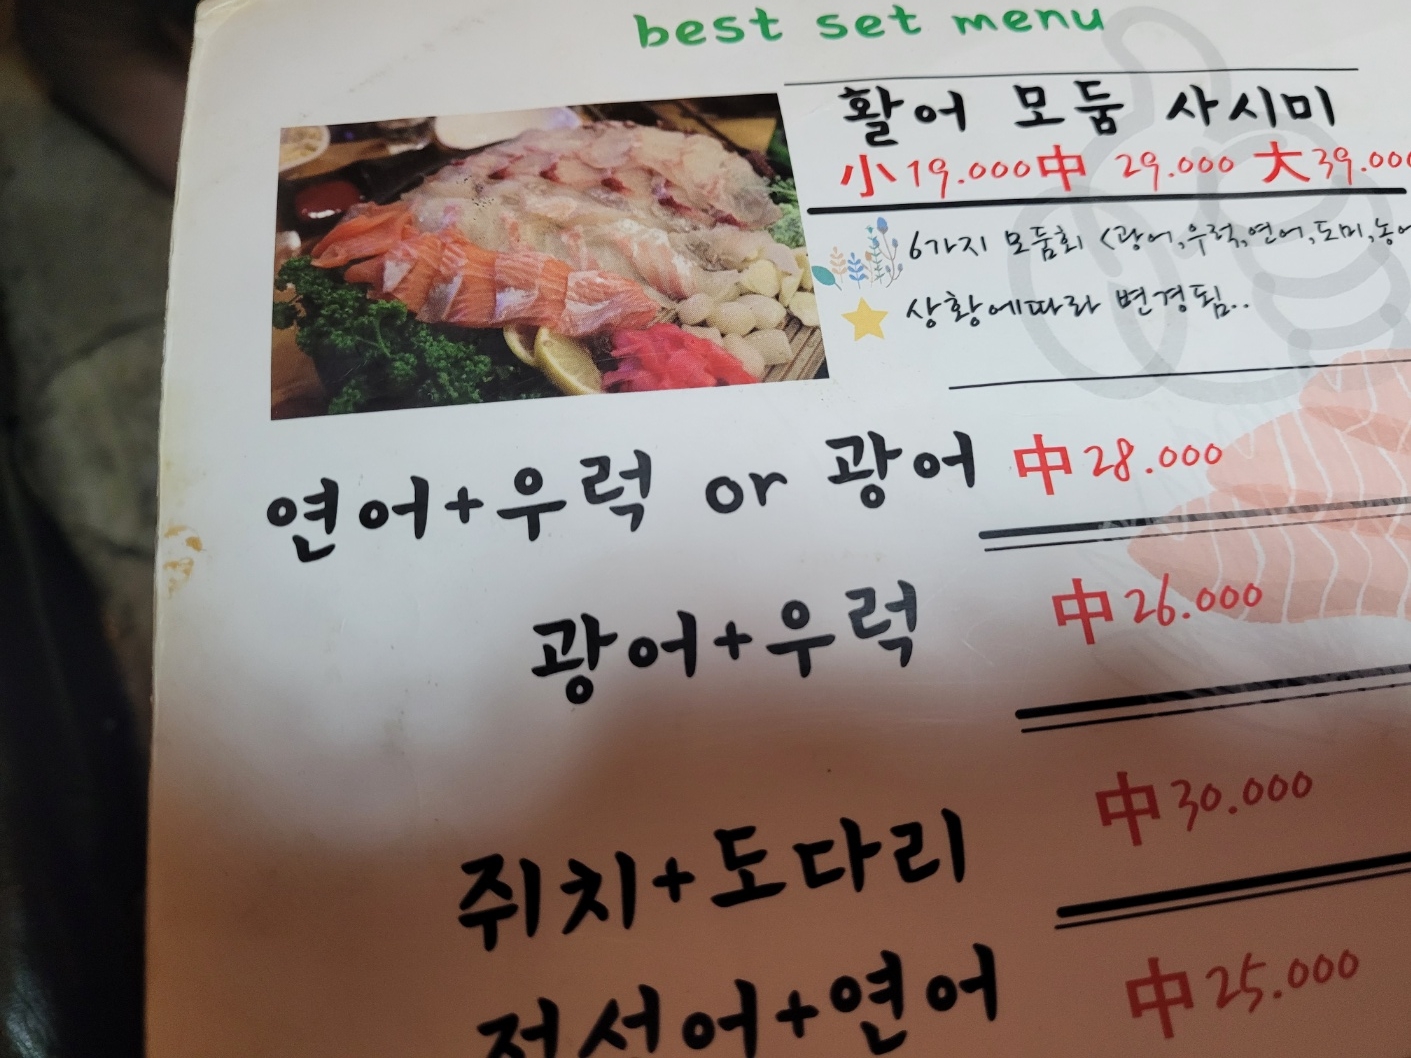 best set menu
활어 모둠 사시미
小 19.000 中 29.000 大 39.000
6가지 모둠회 <광어,우럭,연어,도미,농어
상황에따라 변경됨..
연어+우럭 or 광어 中 28.000
광어+우럭 中 26.000
쥐치+도다리 中 30.000
전성어+연어 中 25.000